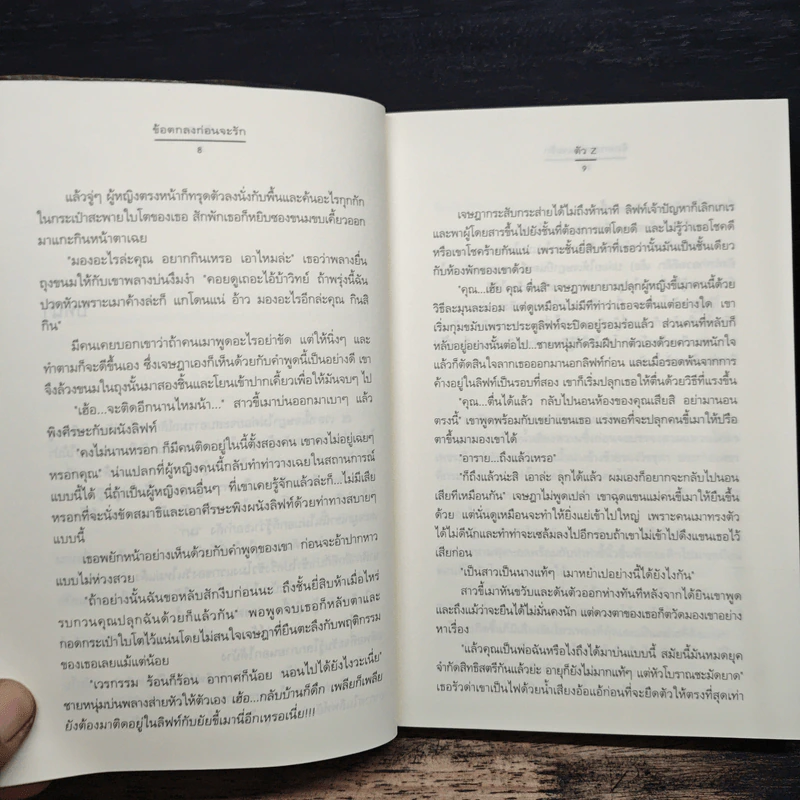 ข้อตกลงก่อนจะรัก
8
แล้วจู่ๆ ผู้หญิงตรงหน้าก็ทรุดตัวลงนั่งกับพื้นและค้นอะไรกุกกัก
ในกระเป๋าสะพายใบโตของเธอ สักพักเธอก็หยิบซองขนมขบเคี้ยวออก
มาแกะกินหน้าตาเฉย
"มองอะไรล่ะคุณ อยากกินเหรอ เอาไหมล่ะ" เธอว่าพลางยื่น
ถุงขนมให้กับเขาพลางบ่นงึมงำ "คอยดูเถอะไอ้บ้าวิทย์ ถ้าพรุ่งนี้ฉัน
ปวดหัวเพราะเมาค้างล่ะก็ แกโดนแน่ อ้าว มองอะไรอีกล่ะคุณ กินสิ
กิน"
มีคนเคยบอกเขาว่าถ้าคนเมาพูดอะไรอย่าขัด แต่ให้นิ่งๆ และ
ทำตามก็จะดีขึ้นเอง ซึ่งเจษฎาเองก็เห็นด้วยกับคำพูดนี้เป็นอย่างดี เขา
จึงล้วงขนมในถุงนั้นมาสองชิ้นและโยนเข้าปากเคี้ยวเพื่อให้มันจบๆ ไป
"เฮ้อ...จะติดอีกนานไหมน้า..." สาวขี้เมาบ่นออกมาเบาๆ แล้ว
พิงศีรษะกับผนังลิฟท์
"คงไม่นานหรอก ก็มีคนติดอยู่ในนี้ตั้งสองคน เขาคงไม่อยู่เฉยๆ
หรอกคุณ" น่าแปลกที่ผู้หญิงคนนี้กลับทำท่าวางเฉยในสถานการณ์
แบบนี้ได้ นี่ถ้าเป็นผู้หญิงคนอื่นๆ ที่เขาเคยรู้จักแล้วล่ะก็...ไม่มีเสีย
หรอกที่จะนั่งขัดสมาธิและเอาศีรษะพิงผนังลิฟท์ด้วยท่าทางสบายๆ
แบบนี้
เธอพยักหน้าอย่างเห็นด้วยกับคำพูดของเขา ก่อนจะอ้าปากหาว
แบบไม่ห่วงสวย
"ถ้าอย่างนั้นฉันขอหลับสักงีบก่อนนะ ถึงชั้นยี่สิบห้าเมื่อไหร่
รบกวนคุณปลุกฉันด้วยก็แล้วกัน" พอพูดจบเธอก็หลับตาและ
กอดกระเป๋าใบโตไว้แน่นโดยไม่สนใจเจษฎาที่ยืนตะลึงกับพฤติกรรม
ของเธอเลยแม้แต่น้อย
"เวรกรรม ร้อนก็ร้อน อากาศก็น้อย นอนไปได้ยังไงวะเนี่ย"
ชายหนุ่มบ่นพลางส่ายหัวให้ตัวเอง เฮ้อ...กลับบ้านก็ดึก เพลียก็เพลีย
ยังต้องมาติดอยู่ในลิฟท์กับยัยขี้เมานี่อีกเหรอเนี่ย!!!
ตัว Z
9
เจษฎากระสับกระส่ายได้ไม่ถึงห้านาที ลิฟท์เจ้าปัญหาก็เลิกเกเร
และพาผู้โดยสารขึ้นไปยังชั้นที่ต้องการแต่โดยดี และไม่รู้ว่าเธอโชคดี
หรือเขาโชคร้ายกันแน่ เพราะชั้นยี่สิบห้าที่เธอว่านั้นมันเป็นชั้นเดียว
กับห้องพักของเขาด้วย
"คุณ...เฮ้ย คุณ ตื่นสิ" เจษฎาพยายามปลุกผู้หญิงขี้เมาคนนี้ด้วย
วิธีละมุนละม่อม แต่ดูเหมือนไม่มีทีท่าว่าเธอจะตื่นแต่อย่างใด เขา
เริ่มกุมขมับเพราะประตูลิฟท์จะปิดอยู่รอมร่อแล้ว ส่วนคนที่หลับก็
หลับอยู่อย่างนั้นต่อไป...ชายหนุ่มกัดริมฝีปากตัวเองด้วยความหนักใจ
แล้วก็ตัดสินใจลากเธอออกมานอกลิฟท์ก่อน และเมื่อรอดพ้นจากการ
ค้างอยู่ในลิฟท์เป็นรอบที่สอง เขาก็เริ่มปลุกเธอให้ตื่นด้วยวิธีที่แรงขึ้น
"คุณ...ตื่นได้แล้ว กลับไปนอนห้องของคุณเสียสิ อย่ามานอน
ตรงนี้" เขาพูดพร้อมกับเขย่าแขนเธอ แรงพอที่จะปลุกคนขี้เมาให้ปรือ
ตาขึ้นมามองเขาได้
"อาราย...ถึงแล้วเหรอ"
"ก็ถึงแล้วน่ะสิ เอาล่ะ ลุกได้แล้ว ผมเองก็อยากจะกลับไปนอน
เสียทีเหมือนกัน" เจษฎาไม่พูดเปล่า เขาฉุดแขนแม่คนขี้เมาให้ยืนขึ้น
ด้วย แต่นั่นดูเหมือนจะทำให้ยิ่งแย่เข้าไปใหญ่ เพราะคนเมาทรงตัว
ได้ไม่ดีนักและทำท่าจะเซล้มลงไปอีกรอบถ้าเขาไม่เข้าไปดึงแขนเธอไว้
เสียก่อน
"เป็นสาวเป็นนางแท้ๆ เมาหยำเปอย่างนี้ได้ยังไงกัน"
สาวขี้เมาหันขวับและดันตัวออกห่างทันทีหลังจากได้ยินเขาพูด
และถึงแม้ว่าจะยืนได้ไม่มั่นคงนัก แต่ดวงตาของเธอก็ตวัดมองเขาอย่าง
หาเรื่อง
"แล้วคุณเป็นพ่อฉันหรือไงถึงได้มาบ่นแบบนี้ สมัยนี้มันหมดยุค
จำกัดสิทธิสตรีกันแล้วย่ะ อายุก็ยังไม่มากแท้ๆ แต่หัวโบราณชะมัดยาด"
เธอรัวด่าเขาเป็นไฟด้วยน้ำเสียงอ้อแอ้ก่อนที่จะยืดตัวให้ตรงที่สุดเท่า